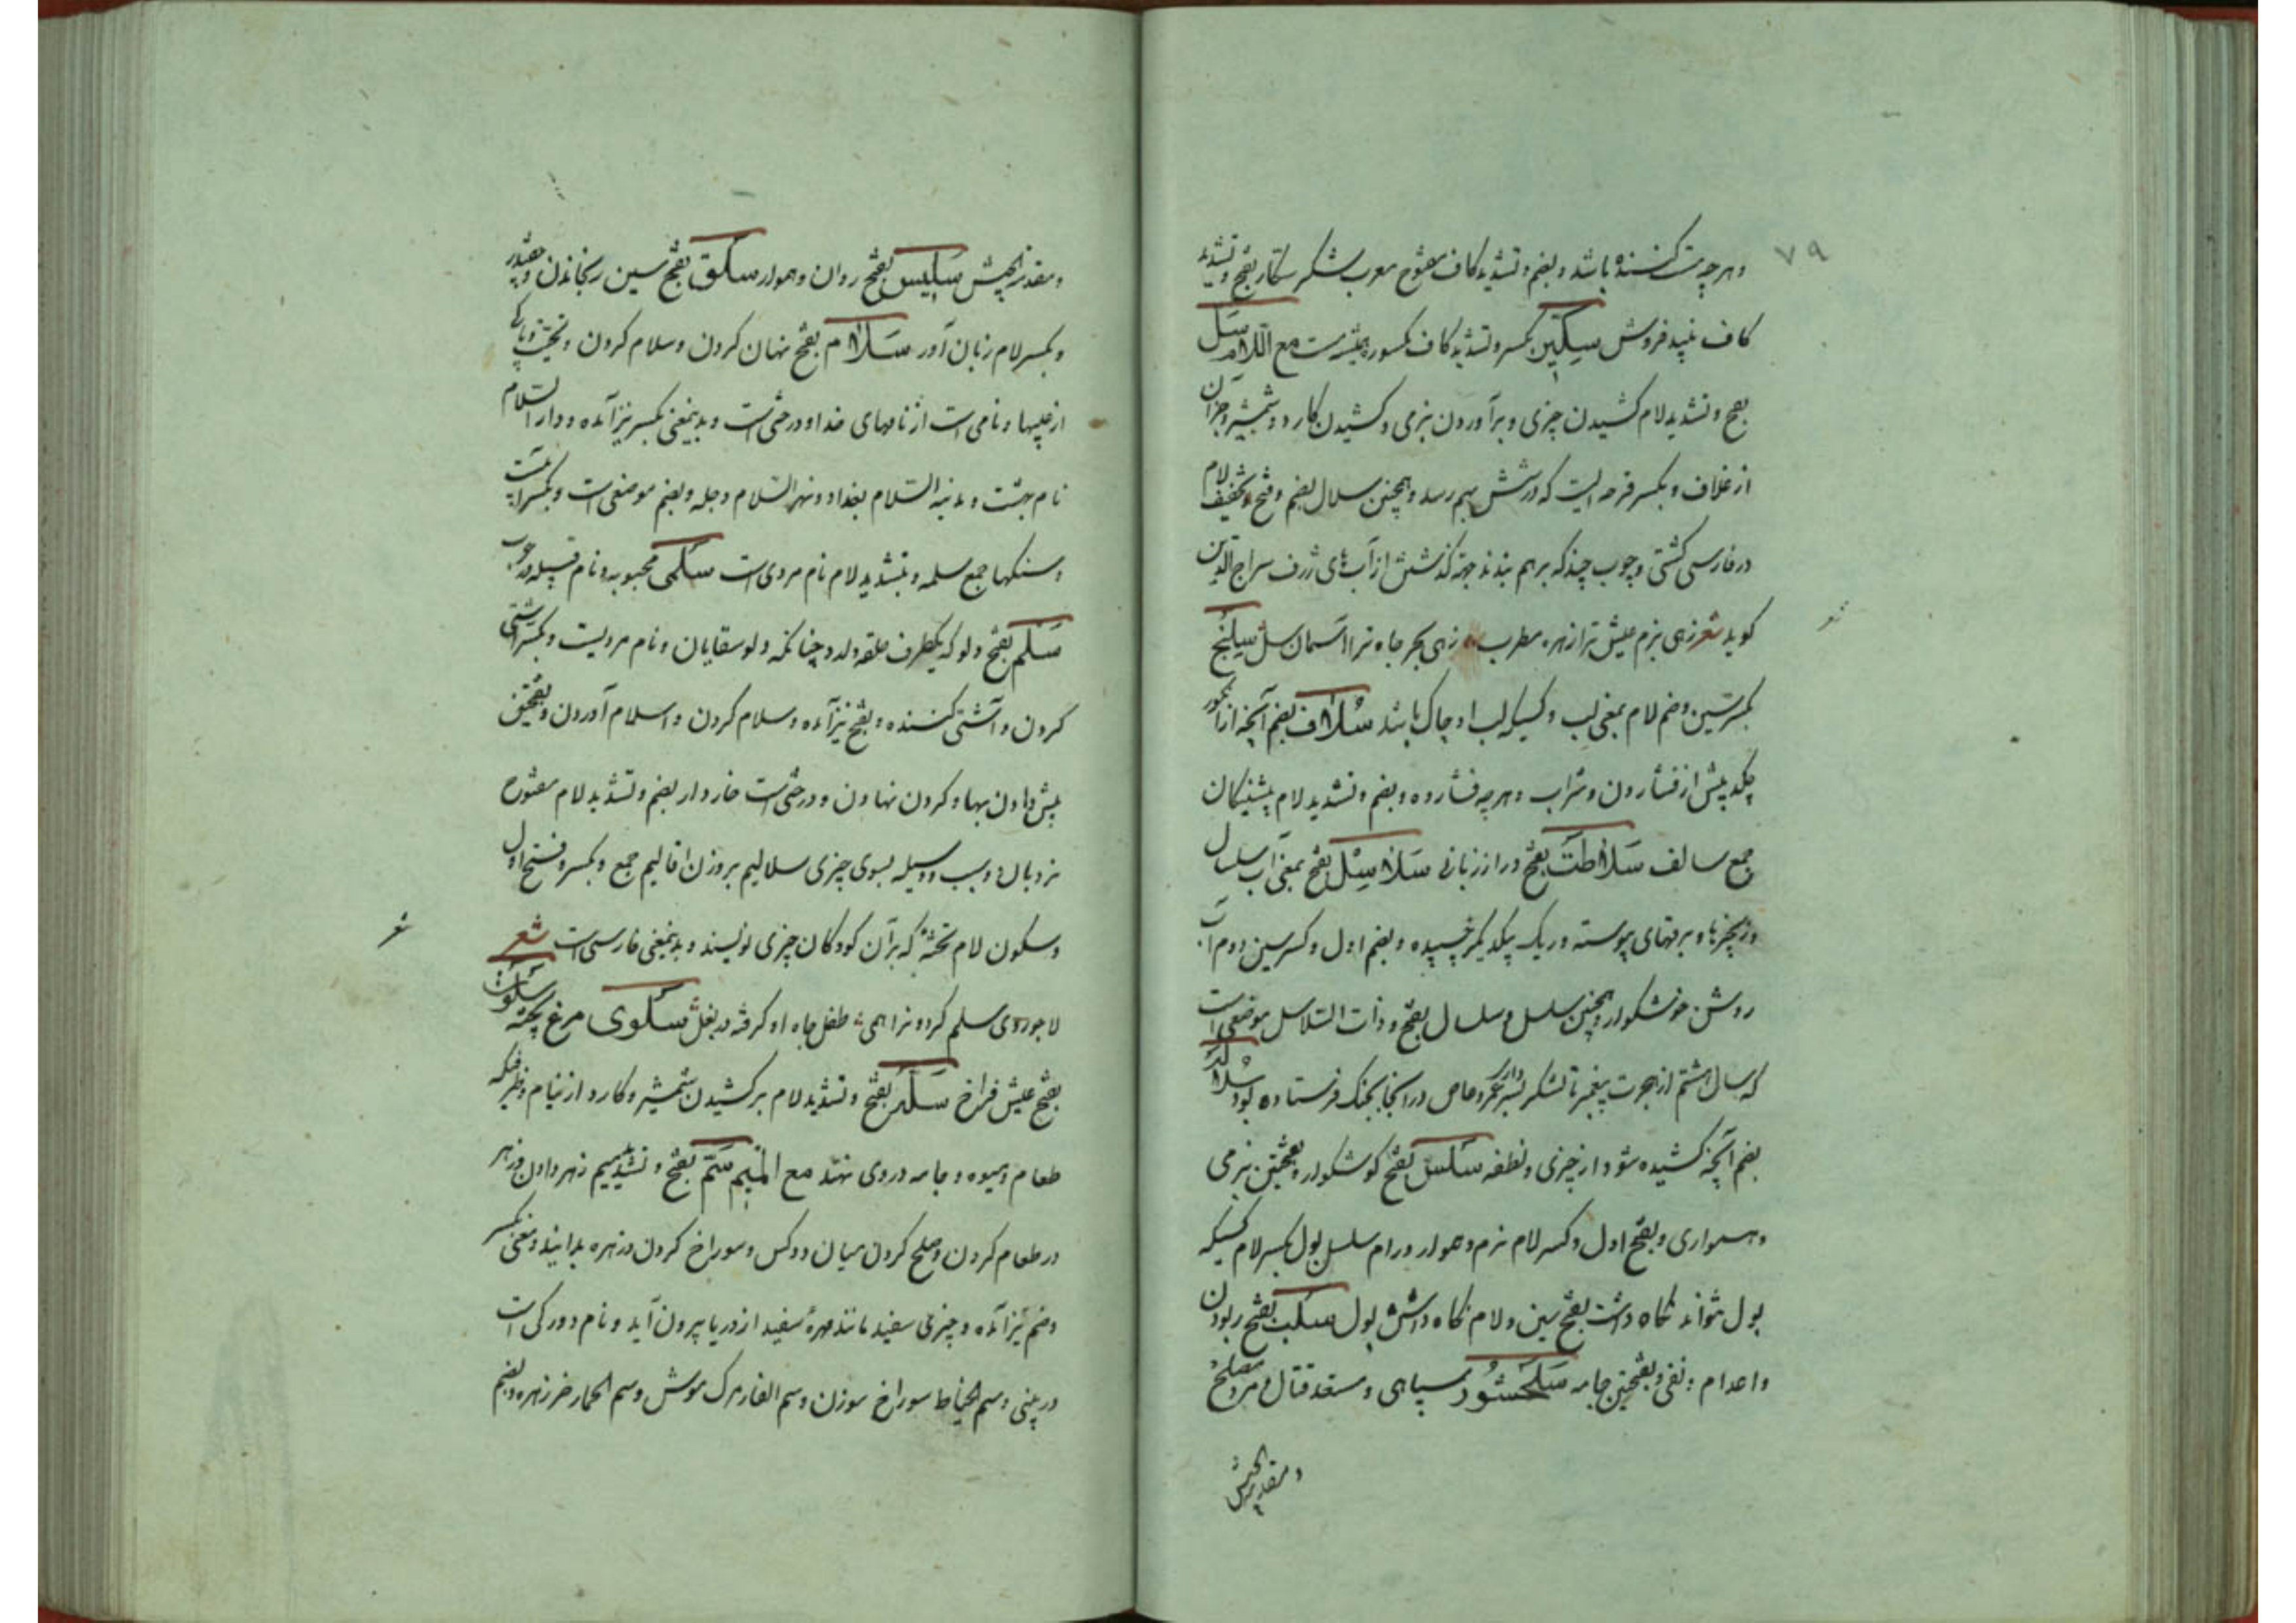 ۷۹
و هرچه مست کننده باشد و بضم و تشدید کاف مفتوح معرب شکر سکّار بفتح و تشدید
کاف نبید فروش سِکّین بکسر و تشدید کاف مکسور مع اللام سَلّ
بفتح و تشدید لام کشیدن چیزی و برآوردن بنرمی و کشیدن کارد و شمشیر و جز آن
از غلاف و بکسر قرحه ایست که در شش بهم رسد و همچنین سلال بضم و فتح و تخفیف لام
در فارسی کشتی و چوب چند که بر هم بندند جهة گذشتن از آب‌های ژرف سراج الدین
گوید شعر زهی بزم عیش ترا زهره مطرب زهی بحر جاه ترا آسمان سل سِیلنج
بکسر سین و ضم لام بمعنی لب و کسیکه لب او چاک باشد سُلاف بضم آنچه از انگور
چکد پیش از فشاردن و شراب و هرچه فشارده و بضم و تشدید لام پیشینیکان
جمع سالف سَلاطَت بفتح دراز زبانی سَلاسِل بفتح بمعنی آب سلسال
و زنجیرها و برقهای پیوسته و ریک بیکدیگر چسپیده و بضم اول و کسر سین دوم آب
روشن خوشگوار و همچنین سلسل و سلسال بفتح و ذات السّلاسل موضعی است
که سال هشتم از هجرت پیغمبر ما لشکر بسرداری عمرو عاص در آنجا بجنک فرستاده بود سُلالَه
بضم آنچه کشیده شود از چیزی و نطفه سَلسَل بفتح گوشگوار و بفتحتین نرمی
و همواری و بفتح اول و کسر لام نرم و هموار و رام سلس بول بکسر لام کسیکه
بول نتواند نگاه داشت بفتح سین و لام نگاه داشتن بول سَلب بفتح ربودن
و اعدام و نفی و بفتحتین جامه سَلَحشُور سپاهی و مستعد قتال و مرد مصلح
و مقدمة الجیش
و مقدمة الجیش سَلِیس بفتح روان و هموار سَلق بفتح سین رنجانیدن
و بکسر لام زبان آور سَلام بفتح نهان کردن و سلام کردن و تحیت و پاکی
از عیبها و نامی است از نامهای خدا و درختی است و بدینمعنی بکسر نیز آمده و دار السّلام
نام بهشت و مدینه السّلام بغداد و نهر السّلام دجله و بضم موضعی است و بکسر
و سنکها جمع سلمه و بتشدید لام نام مردی است سَلمی محبوبه و نام قبیله
سَلم بفتح دلو که یکطرف حلقه دارد چنانکه دلو سقایان و نام مردیست و بکسر آشتی
کردن و آشتی کننده و بفتح نیز آمده و سلام کردن و اسلام آوردن و بفتحتین
پیش دادن بها و کردن نهادن و درختی است خاردار بضم و تشدید لام مفتوح
نردبان و سبب و وسیله بسوی چیزی سلالیم بروزن اقالیم جمع و بکسر و فتح اول
و سکون لام تخته که بر آن کودکان چیزی نویسند و بدینمعنی فارسی است شعر
شعر
لاجوردی سلم گردون را همی طفل جاه او گرفته در بغل سَلوی مرغ پخته سلوَت
بفتح عیش فراخ سَلّه بفتح و تشدید لام برکشیدن شمشیر و کارد از نیام و ظرفیکه
طعام و میوه و جامه در وی نهند مع المیم سَمّ بفتح و تشدید میم زهر دادن و زهر
در طعام کردن و صلح کردن میان دو کس و سوراخ کردن و زهره بدینمعنی بکسر
و ضم نیز آمده و چیزی سفید مانند مهره سفید از دریا بیرون آید و نام دو رکی است
در بینی و سم الخیاط سوراخ سوزن و سم الفار مرک موش و سم الحمار خرزهره و بضم